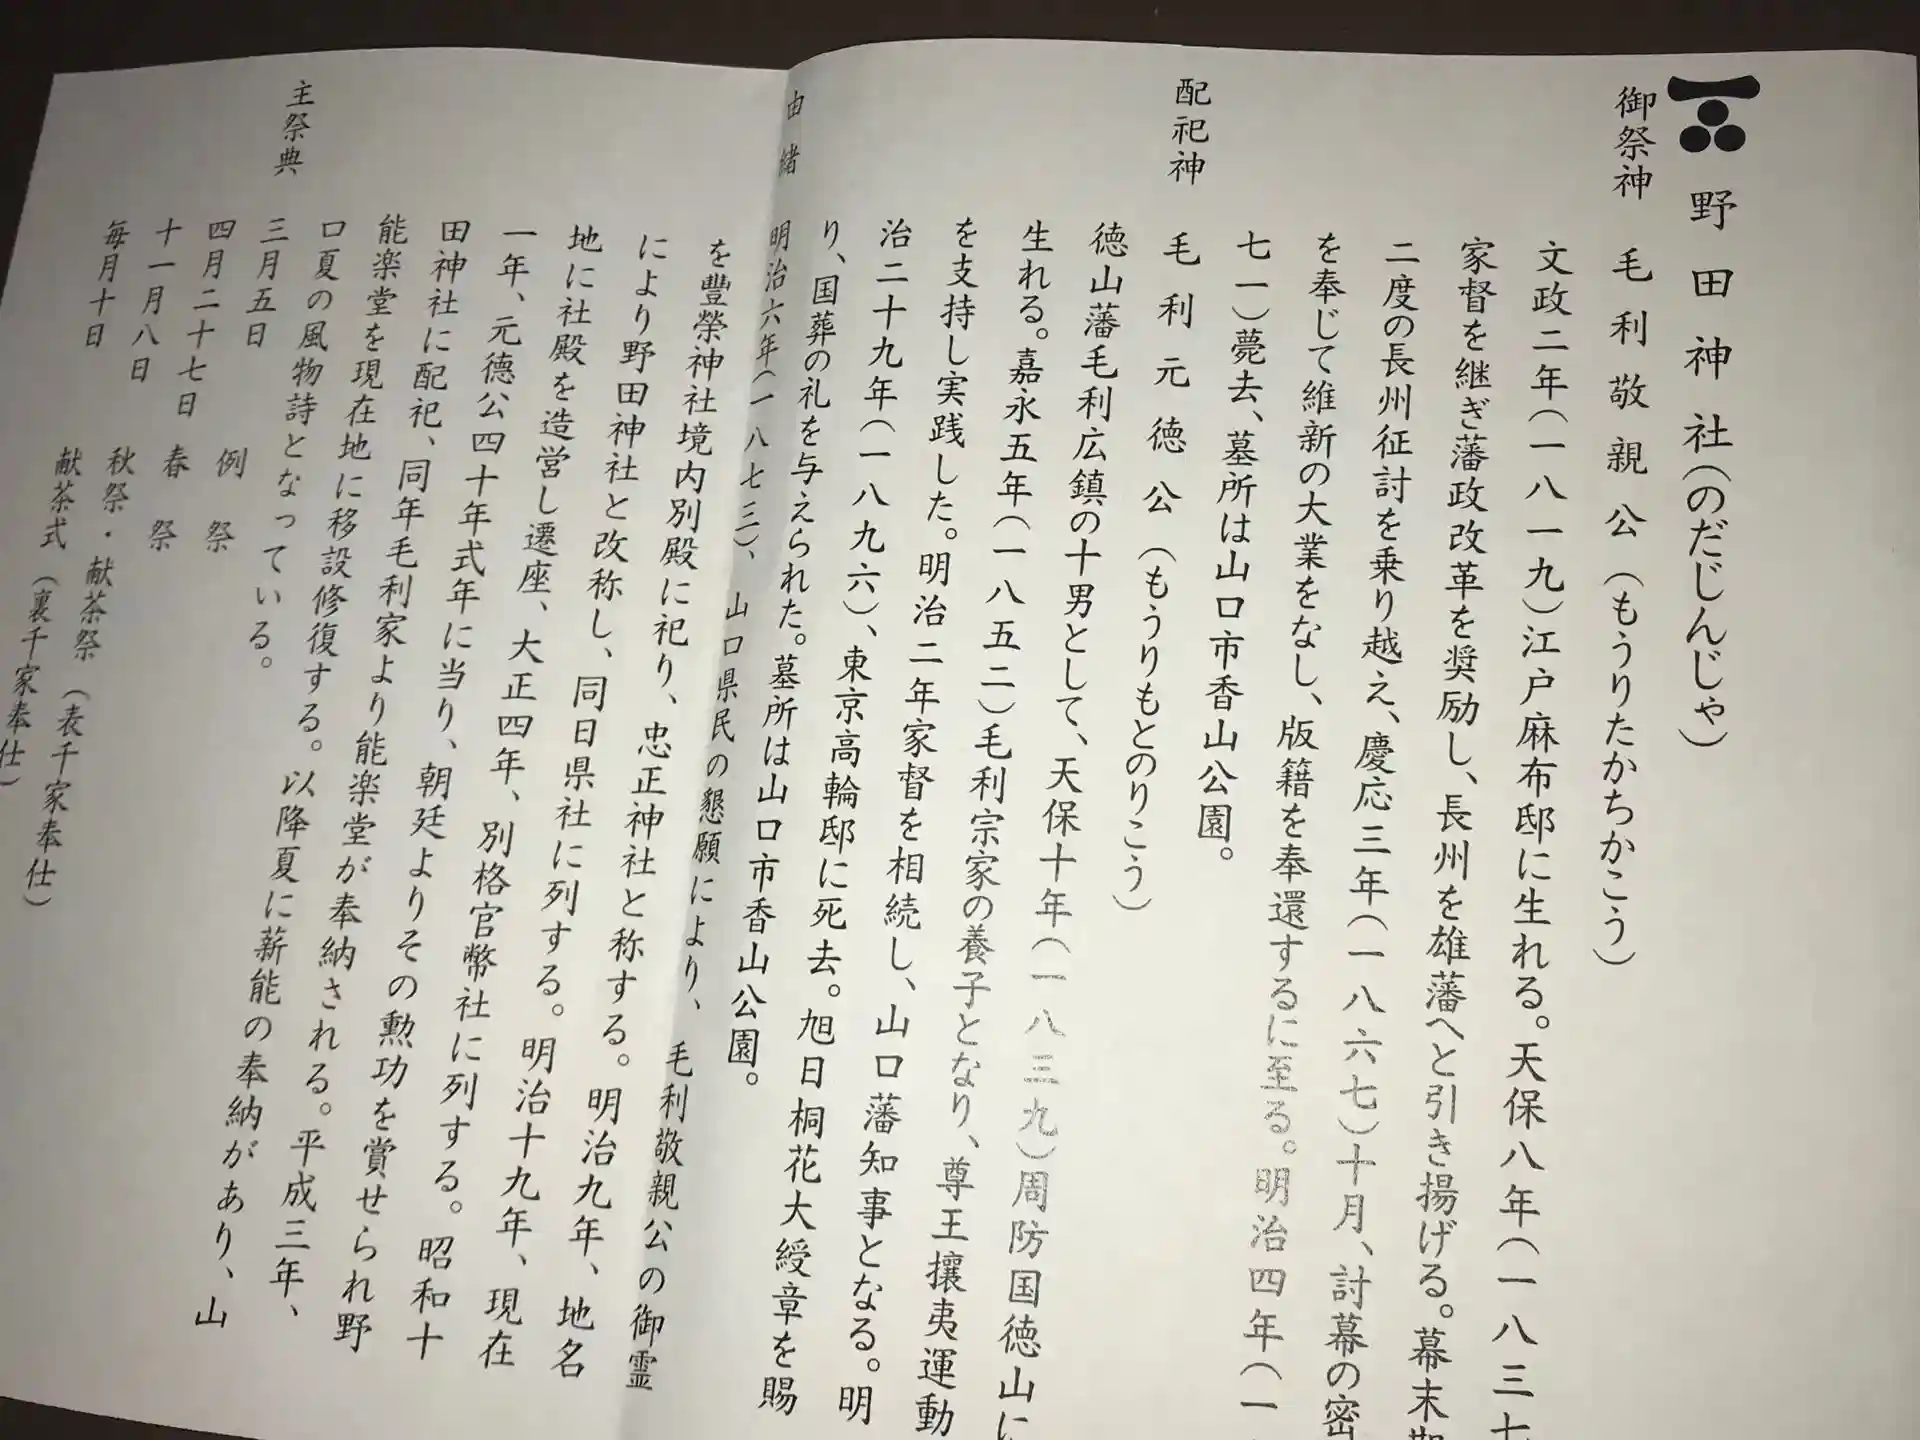 野田神社(のだじんじゃ)
御祭神　毛利敬親公(もうりたかちかこう)
文政二年(一八一九)江戸麻布邸に生れる。天保八年(一八三七
家督を継ぎ藩政改革を奨励し、長州を雄藩へと引き揚げる。幕末
二度の長州征討を乗り越え、慶応三年(一八六七)十月、討幕の密
を奉じて維新の大業をなし、版籍を奉還するに至る。明治四年(一
七一)薨去、墓所は山口市香山公園。
配祀神　毛利元徳公(もうりもとのりこう)
徳山藩毛利広鎮の十男として、天保十年(一八三九)周防国徳山に
生れる。嘉永五年(一八五二)毛利宗家の養子となり、尊王攘夷運動
を支持し実践した。明治二年家督を相続し、山口藩知事となる。明
治二十九年(一八九六)、東京高輪邸に死去。旭日桐花大綬章を賜
り、国葬の礼を与えられた。墓所は山口市香山公園。
由緒　明治六年(一八七三)、山口県民の懇願により、毛利敬親公の御霊
を豐榮神社境内別殿に祀り、忠正神社と称する。明治九年、地名
により野田神社と改称し、同日県社に列する。明治十九年、現在
地に社殿を造営し遷座、大正四年、別格官幣社に列する。昭和十
一年、元徳公四十年式年に当り、朝廷よりその勲功を賞せられ野
田神社に配祀、同年毛利家より能楽堂が奉納される。平成三年、
能楽堂を現在地に移設修復する。以降夏に薪能の奉納があり、山
口夏の風物詩となっている。
主祭典　三月五日　例祭
四月二十七日　春祭
十一月八日　秋祭・献茶祭(表千家奉仕)
毎月十日　献茶式(裏千家奉仕)